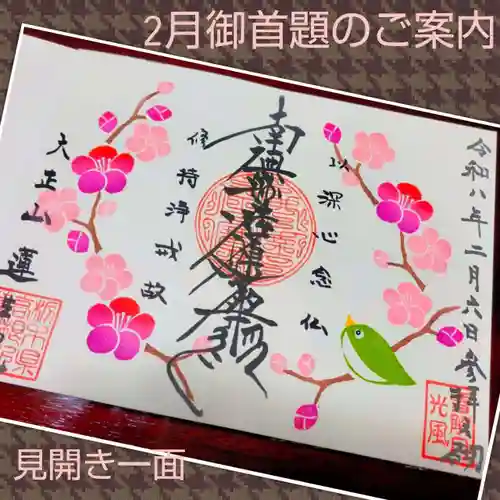 2月御首題のご案内
令和八年二月六日参拝
以深心念仏
南無妙法蓮華経
修持浄戒故
大正山
蓮
春殿
光風
栃木県
見開き一面